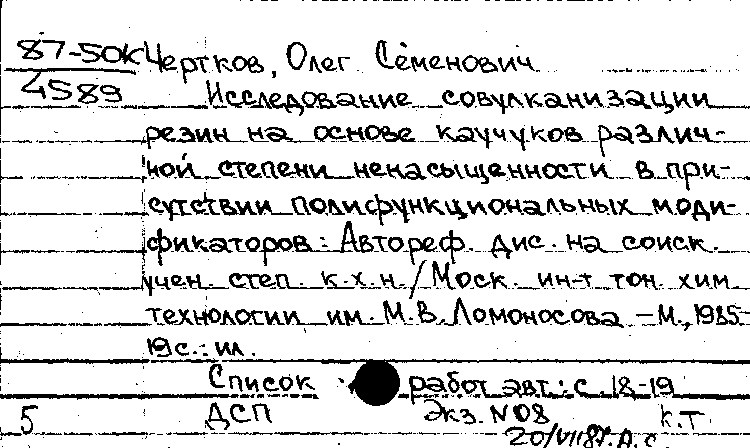 87-50К Чертков, Олег Семенович
4589 Исследование совулканизации
резин на основе каучуков различ-
ной степени ненасыщенности в при-
сутствии полифункциональных моди-
фикаторов: Автореф. дис. на соиск.
учен. степ. к.х.н./Моск. ин-т тон. хим
технологии им. М.В. Ломоносова. – М., 1985-
19 с.: ил.
Список работ авт.: с. 18-19
5 ДСП Экз. N 08 к.т.
20/VII87. Д.С.